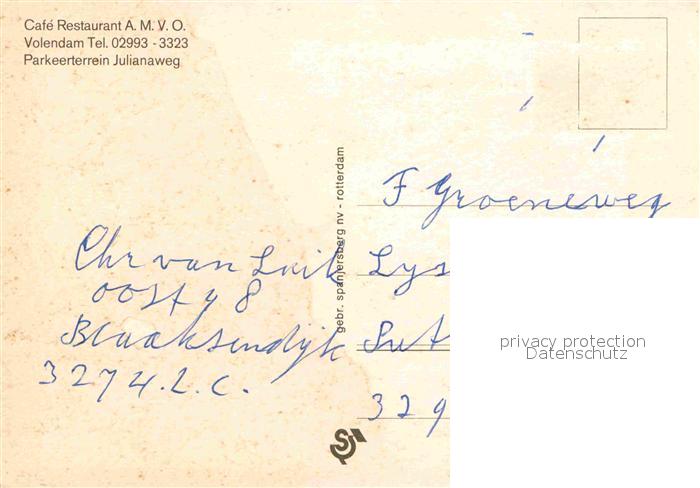 Café Restaurant A. M. V. O.
Volendam Tel. 02993 - 3323
Parkeerterrein Julianaweg
gebr. spanjersberg nv - rotterdam
F Groeneweg
Lys
Sut
329
Chr van Luik
oost 98
Blaaksendijk
3274.L.C.
privacy protection
Datenschutz